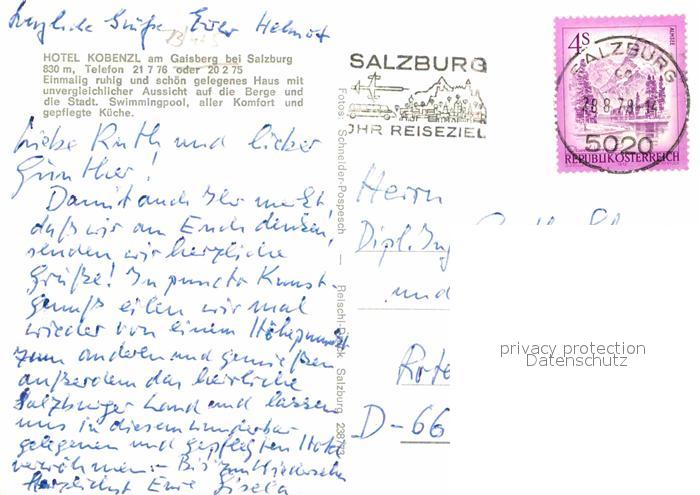 Herzliche Grüße, Euer Helmut
HOTEL KOBENZL am Gaisberg bei Salzburg
830 m, Telefon 21 7 76 oder 20 2 75
Einmalig ruhig und schön gelegenes Haus mit
unvergleichlicher Aussicht auf die Berge und
die Stadt. Swimmingpool, aller Komfort und
gepflegte Küche.
Liebe Ruth und lieber
Günther!
Damit auch Ihr merkt,
daß wir an Euch denken,
senden wir herzliche
Grüße! In puncto Kunst-
genuß eilen wir mal
wieder von einem Höhepunkt
zum anderen und genießen
außerdem das herrliche
Salzburger Land und lassen
uns in diesem wunderbar
gelegenen und gepflegten Hotel
verwöhnen. - Bis zum Wiedersehn
Herzlichst Eure Gisela
Fotos: Schneider-Pospesch — Reischl-Druck Salzburg
SALZBURG
IHR REISEZIEL
4 S
ALMSEE
REPUBLIK ÖSTERREICH
SALZBURG
28.8.78-14
5020
Herrn
Dipl. Ing
und
Rote
D-66
privacy protection
Datenschutz